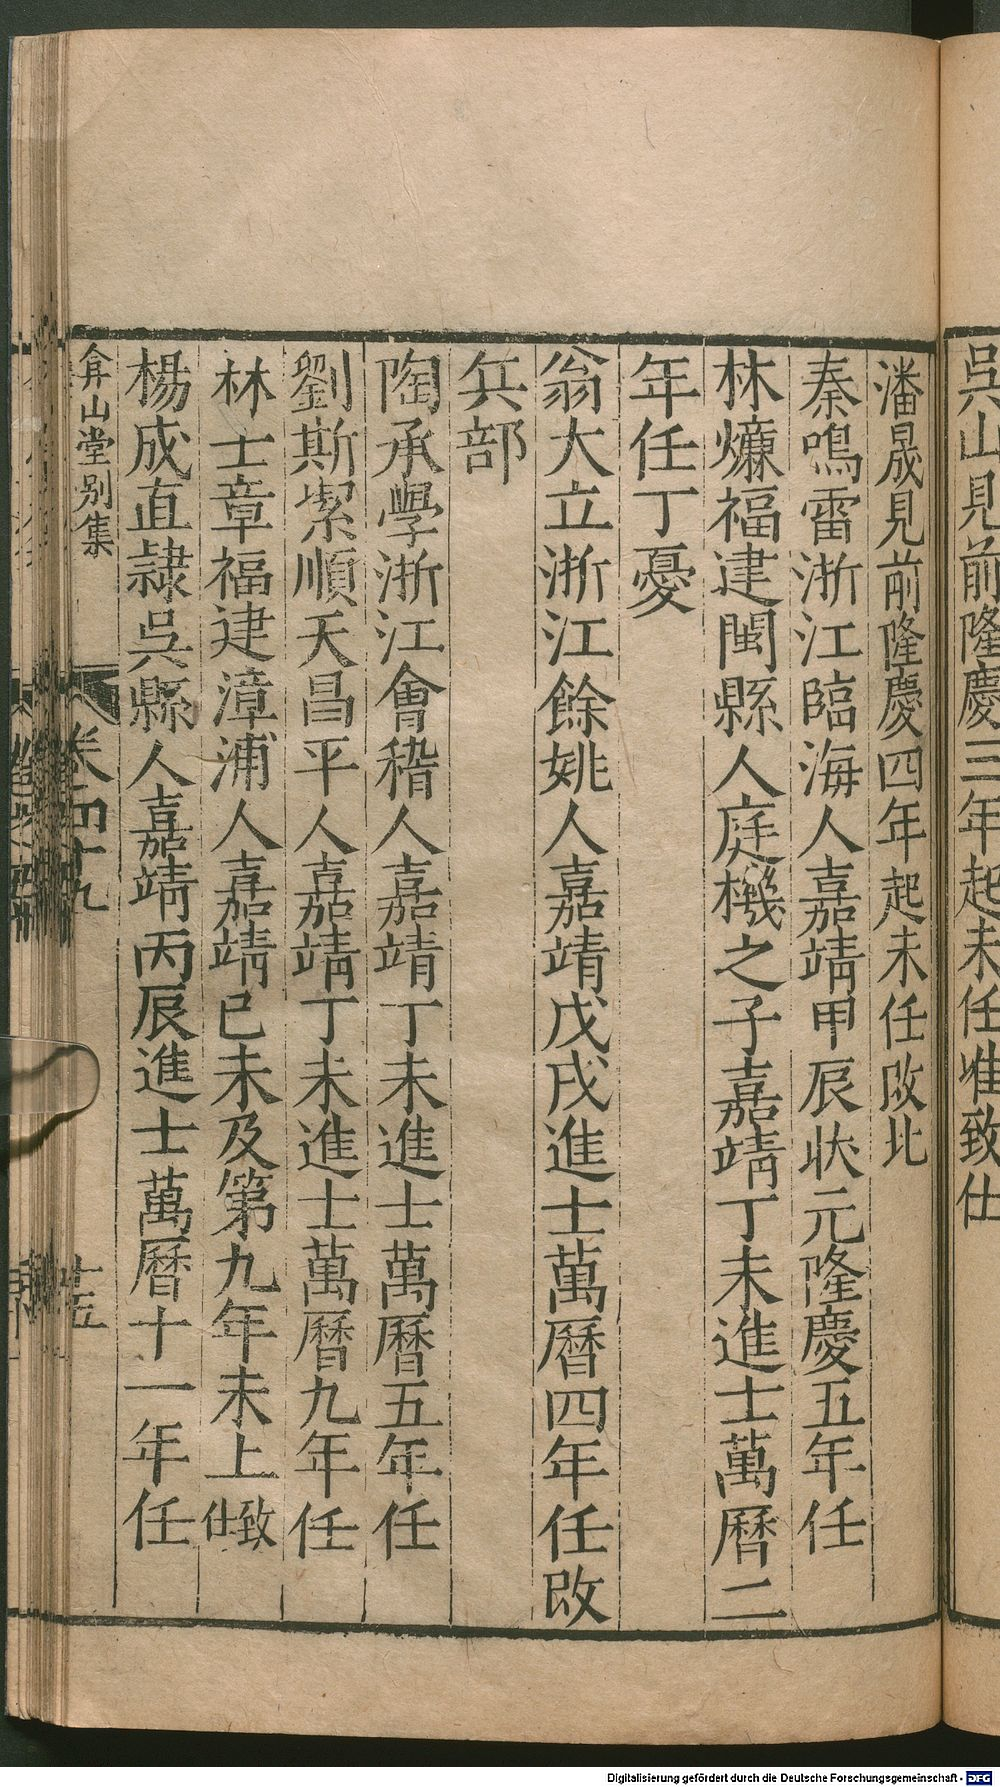 吳山見前隆慶三年起未任准致仕
潘晟見前隆慶四年起未任改北
秦鳴雷浙江臨海人嘉靖甲辰狀元隆慶五年任
林爌福建閩縣人庭機之子嘉靖丁未進士萬曆二
年任丁憂
翁大立浙江餘姚人嘉靖戊戌進士萬曆四年任改
兵部
陶承學浙江會稽人嘉靖丁未進士萬曆五年任
劉斯㓗順天昌平人嘉靖丁未進士萬曆九年任
林士章福建漳浦人嘉靖已未及第九年未上致仕
楊成直隷吳縣人嘉靖丙辰進士萬曆十一年任
弇山堂别集
卷四十九
廿五
Digitalisierung gefördert durch die Deutsche Forschungsgemeinschaft - DFG